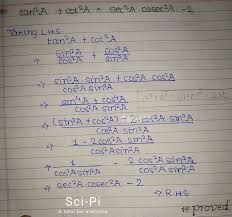 tan²A + cot²A = sec²A . cosec²A - 2
Taking LHS
tan²A + cot²A
⇒ sin²A/cos²A + cos²A/sin²A
⇒ sin²A . sin²A + cos²A . cos²A / cos²A sin²A
⇒ sin⁴A + cos⁴A / cos²A sin²A
⇒ (sin²A + cos²A) - 2 cos²A sin²A / cos²A sin²A
⇒ 1 - 2 cos²A sin²A / cos²A sin²A
⇒ 1 / cos²A sin²A - 2 cos²A sin²A / cos²A sin²A
⇒ sec²A . cosec²A - 2
⇒ RHS
Sci-Pi
A tutor for everyone
proved